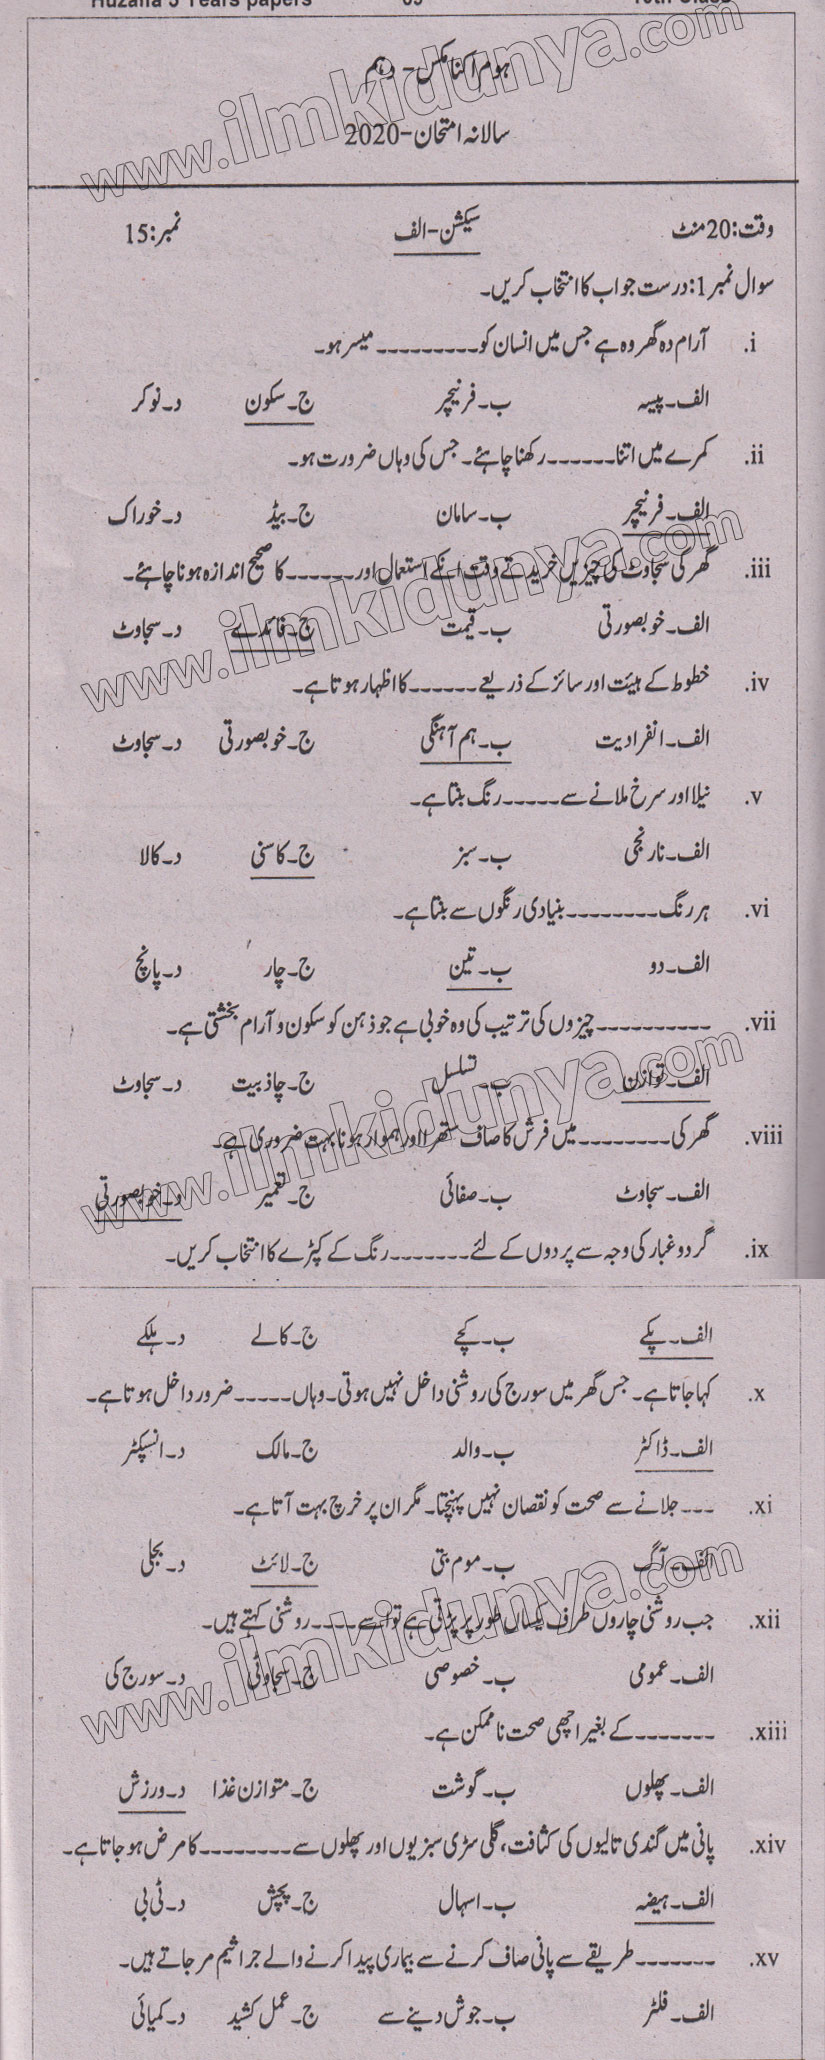 Huzaifa 5 Years papers 69 10th Class
ہوم اکنامکس - دہم
سالانہ امتحان-2020
وقت:20منٹ سیکشن-الف نمبر:15
سوال نمبر1: درست جواب کا انتخاب کریں۔
i. آرام دہ گھر وہ ہے جس میں انسان کو--------- میسر ہو۔
الف۔پیسہ ب۔فرنیچر ج۔سکون د۔نوکر
ii. کمرے میں اتنا------رکھنا چاہئے۔ جس کی وہاں ضرورت ہو۔
الف۔فرنیچر ب۔سامان ج۔بیڈ د۔خوراک
iii. گھر کی سجاوٹ کی چیزیں خریدتے وقت انکے استعمال اور------کا صحیح اندازہ ہونا چاہئے۔
الف۔خوبصورتی ب۔قیمت ج۔فائدے د۔سجاوٹ
iv. خطوط کے ہیئت اور سائز کے ذریعے------کا اظہار ہوتا ہے۔
الف۔انفرادیت ب۔ہم آہنگی ج۔خوبصورتی د۔سجاوٹ
v. نیلا اور سرخ ملانے سے-----رنگ بنتا ہے۔
الف۔نارنجی ب۔سبز ج۔کاسنی د۔کالا
vi. ہر رنگ--------بنیادی رنگوں سے بنتا ہے۔
الف۔دو ب۔تین ج۔چار د۔پانچ
vii. ----------چیزوں کی ترتیب کی وہ خوبی ہے جو ذہن کو سکون و آرام بخشتی ہے۔
الف۔توازن ب۔تسلسل ج۔جاذبیت د۔سجاوٹ
viii. گھر کی--------میں فرش کا صاف ستھرا اور ہموار ہونا بہت ضروری ہے۔
الف۔سجاوٹ ب۔صفائی ج۔تعمیر د۔خوبصورتی
ix. گرد و غبار کی وجہ سے پردوں کے لئے-------رنگ کے کپڑے کا انتخاب کریں۔
الف۔پکے ب۔کچے ج۔کالے د۔ہلکے
x. کہا جاتا ہے۔ جس گھر میں سورج کی روشنی داخل نہیں ہوتی۔ وہاں-----ضرور داخل ہوتا ہے۔
الف۔ڈاکٹر ب۔والد ج۔مالک د۔انسپکٹر
xi. ---جلانے سے صحت کو نقصان نہیں پہنچتا۔ مگر ان پر خرچ بہت آتا ہے۔
الف۔آگ ب۔موم بتی ج۔لائٹ د۔بجلی
xii. جب روشنی چاروں طرف یکساں طور پر پڑتی ہے تو اسے----روشنی کہتے ہیں۔
الف۔عمومی ب۔خصوصی ج۔سجاوٹی د۔سورج کی
xiii. -------کے بغیر اچھی صحت ناممکن ہے۔
الف۔پھلوں ب۔گوشت ج۔متوازن غذا د۔ورزش
xiv. پانی میں گندی نالیوں کی کثافت، گلی سڑی سبزیوں اور پھلوں سے--------کا مرض ہو جاتا ہے۔
الف۔ہیضہ ب۔اسہال ج۔پیچش د۔ٹی بی
xv. -------طریقے سے پانی صاف کرنے سے بیماری پیدا کرنے والے جراثیم مر جاتے ہیں۔
الف۔فلٹر ب۔جوش دینے سے ج۔عمل کشید د۔کمیائی
www.ilmkidunya.com
www.ilmkidunya.com
www.ilmkidunya.com
www.ilmkidunya.com